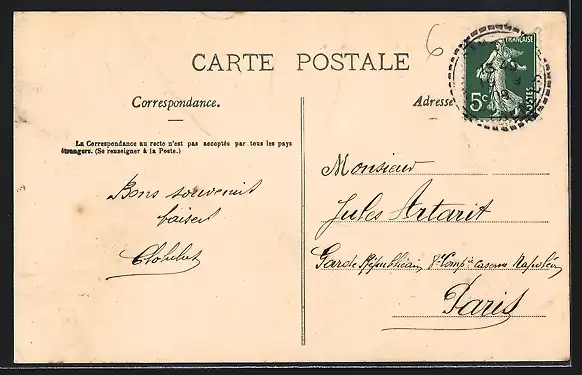 6
CARTE POSTALE
Correspondance.
Adresse
FRANÇAISE
5c
POSTES
La Correspondance au recto n'est pas acceptée par tous les pays
étrangers. (Se renseigner à la Poste.)
Bons souvenirs
baisers
Monsieur
Jules Artarit
Garde Républicain 8e Compie caserne Napoléon
Paris